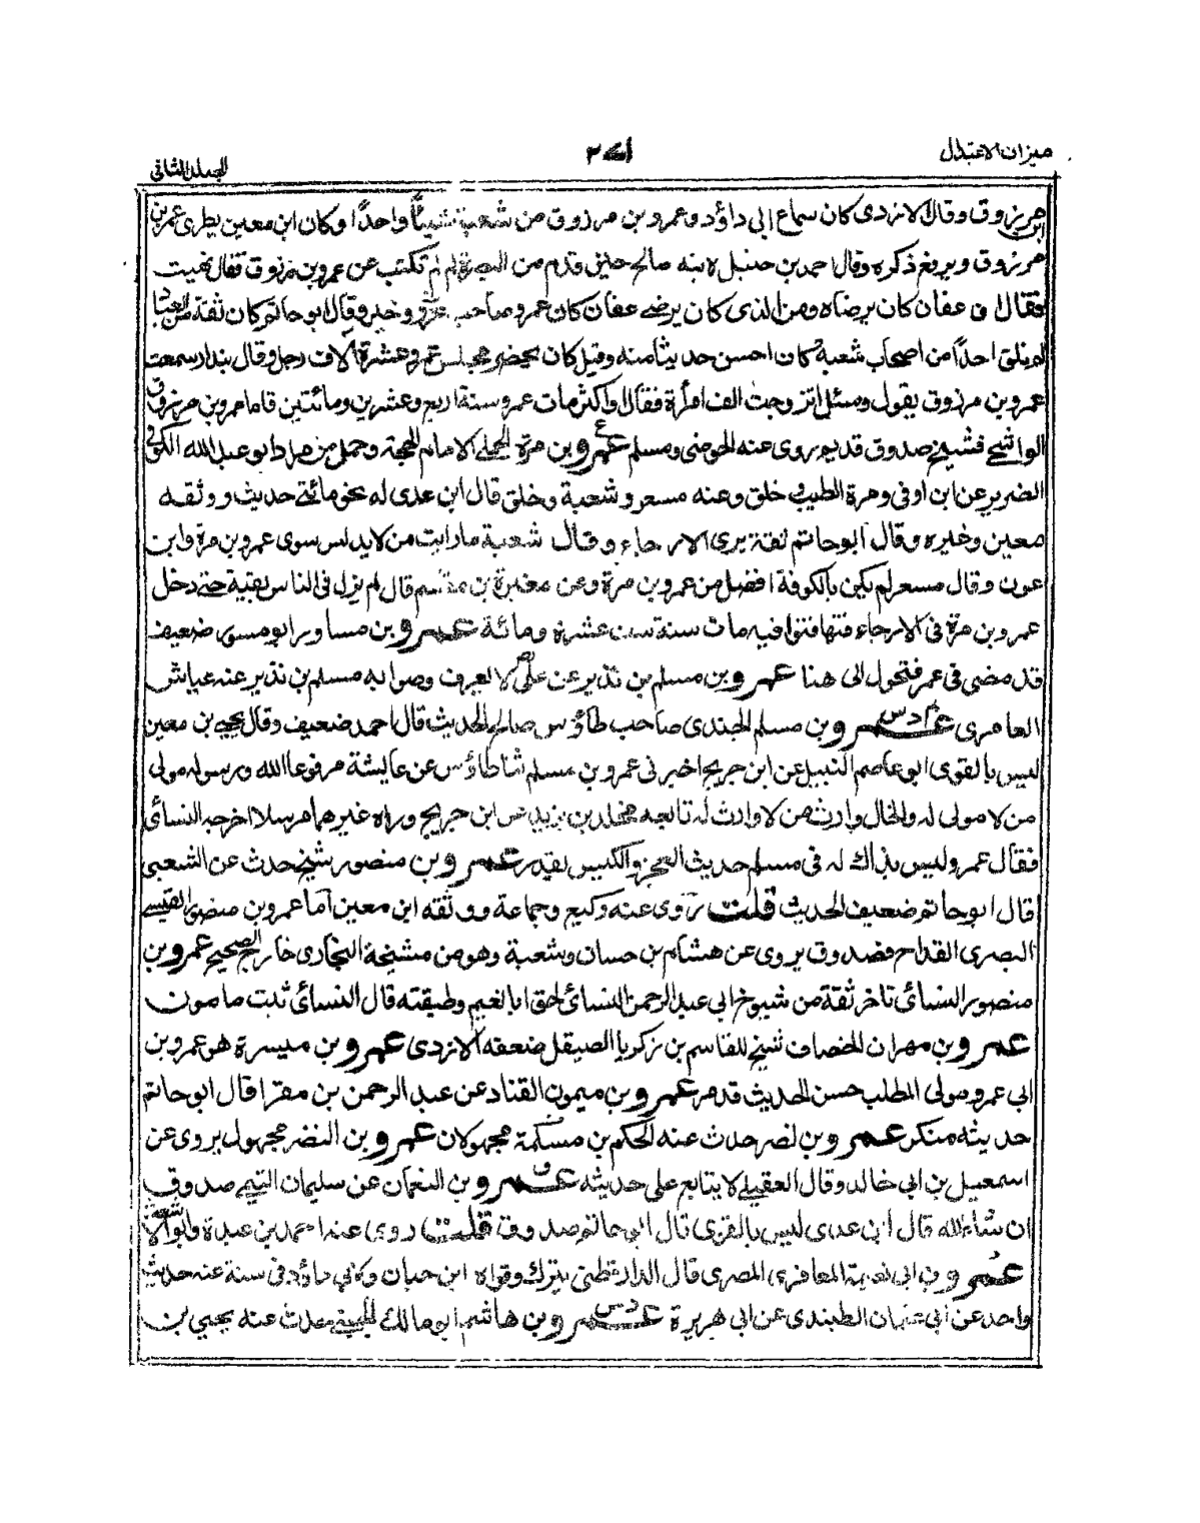 ميزان الاعتدال
٢٧١
الجلد الثانى
مرزوق وقال الازدى كان سماع ابى داؤد وعمرو بن مرزوق من شعبة شيئاً واحداً وكان ابن معين يطرى عمرو بن
مرزوق ويرفع ذكره وقال احمد بن حنبل لابنه صالح حين قدم من البصرة لم لم تكتب عن عمرو بن مرزوق فقال نهيت
فقال ان عفان كان يرضاه ومن الذى كان يرضى عفان كان عمرو صاحب غزو وخير وقال ابو حاتم كان ثقة من العباد
لم نلق احداً من اصحاب شعبة كان احسن حديثا منه وقيل كان يحضر مجلس عمرو عشرة آلاف رجل وقال بندار سمعت
عمرو بن مرزوق يقول وسئل اتزوجت الف امرأة فقال او اكثر مات عمرو سنة اربع وعشرين ومائتين فاما عمرو بن مرزوق
الواشحى فشيخ صدوق قديم روى عنه الحوضى ومسلم ع عمرو بن مرة الجملى الامام الحجة وجمل من مراد ابو عبد الله الكوفى
الضرير عن ابن اوفى ومرة الطيب وخلق وعنه مسعر وشعبة وخلق قال ابن عدى له نحو مائتى حديث ووثقه
معين وغيره وقال ابو حاتم ثقة يرى الارجاء وقال شعبة ما رايت من لا يدلس سوى عمرو بن مرة وابن
عون وقال مسعر لم يكن بالكوفة افضل من عمرو بن مرة وعن مغيرة بن مقسم قال لم يزل فى الناس بقية حتى دخل
عمرو بن مرة فى الارجاء فتهافتوا فيه مات سنة ست عشرة ومائة عمرو بن مساور ابو مسور ضعيف
قد مضى فى عمر فتحول الى هنا عمرو بن مسلم بن نذير عن على لا يعرف وصوابه مسلم بن نذير عنه عياش
العامرى م دس عمرو بن مسلم الجندى صاحب طاؤس صالح الحديث قال احمد ضعيف وقال يحيى بن معين
ليس بالقوى ابو عاصم النبيل عن ابن جريج اخبرنى عمرو بن مسلم ثنا طاؤس عن عايشة مرفوعا الله ورسوله مولى
من لا مولى له والخال وارث من لا وارث له تابعه مخلد بن يزيد عن ابن جريج ورواه غيرهما مرسلا اخرجه النسائى
فقال عمرو ليس بذاك له فى مسلم حديث العجز والكيس بقدر عمرو بن منصور شيخ حدث عن الشعبى
قال ابو حاتم ضعيف الحديث قلت روى عنه وكيع وجماعة ووثقه ابن معين اما عمرو بن منصور القيسى
البصرى القداح فصدوق يروى عن هشام بن حسان وشعبة وهو من مشيخة البخارى خارج الصحيح عمرو بن
منصور النسائى تاخر ثقة من شيوخ ابى عبد الرحمن النسائى لحق ابا نعيم وطبقته قال النسائى ثبت مامون
عمرو بن مهران الخصاف شيخ للقاسم بن زكريا الصيقل ضعفه الازدى عمرو بن ميسرة هو عمرو بن
ابى عمرو مولى المطلب حسن الحديث قد مر عمرو بن ميمون القناد عن عبد الرحمن بن مغرا قال ابو حاتم
حديثه منكر عمرو بن نصر حدث عنه الحكم بن مسلمة مجهولان عمرو بن النضر مجهول يروى عن
اسمعيل بن ابى خالد وقال العقيلى لا يتابع على حديثه ق عمرو بن النعمان عن سليمان التيمى صدوق
ان شاء الله قال ابن عدى ليس بالقوى قال ابى حاتم صدوق قلت روى عنه احمد بن عبدة وابو الاشعث
عمرو بن ابى نعيمة المعافرى المصرى قال الدارقطنى يترك وقواه ابن حبان وله فى داؤد فى سنة عنه حديث
واحد عن ابى عثمان الطنبذى عن ابى هريرة دس عمرو بن هاشم ابو مالك الجنبى حدث عنه يحيى بن